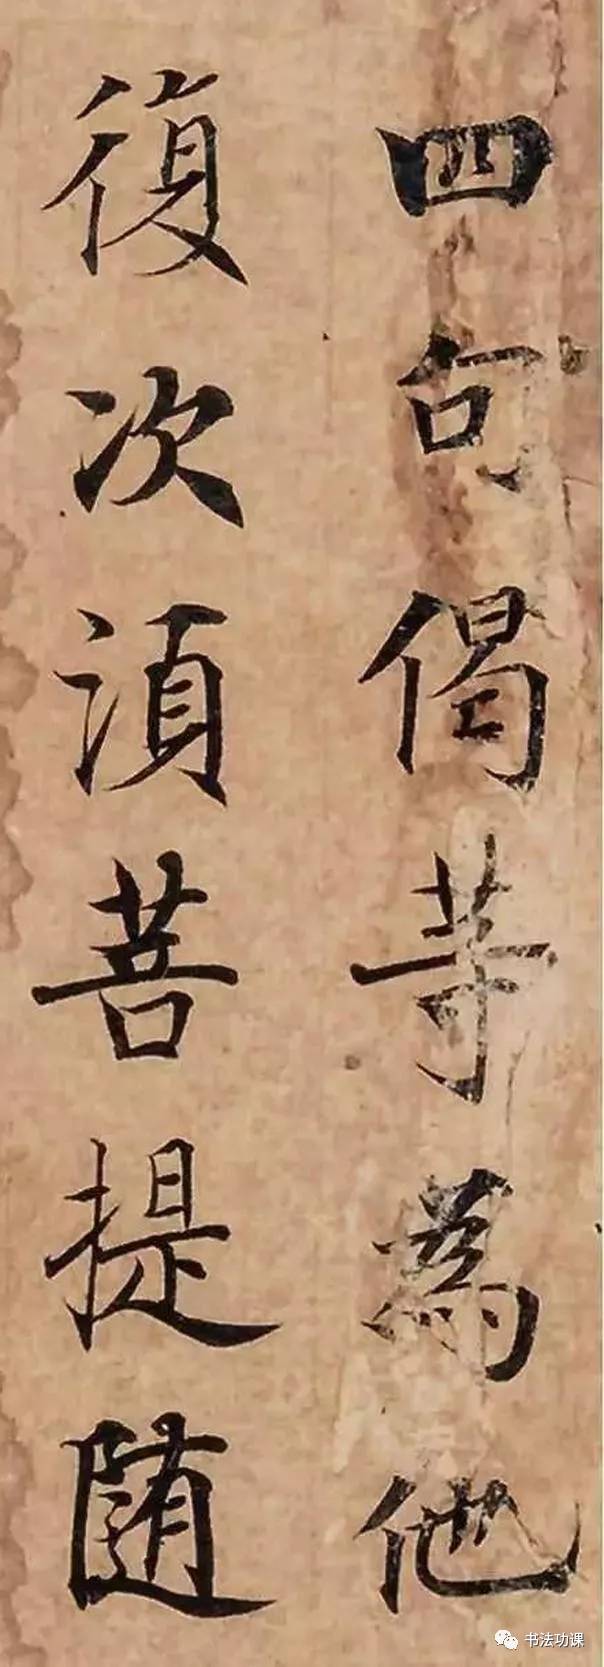 四句偈等為他
復次須菩提随
书法功课